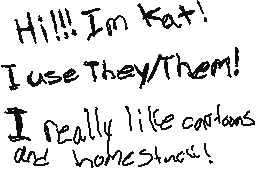 Hi!!! Im Kat!
I use They/Them!
I really like cartoons
and homestuck!